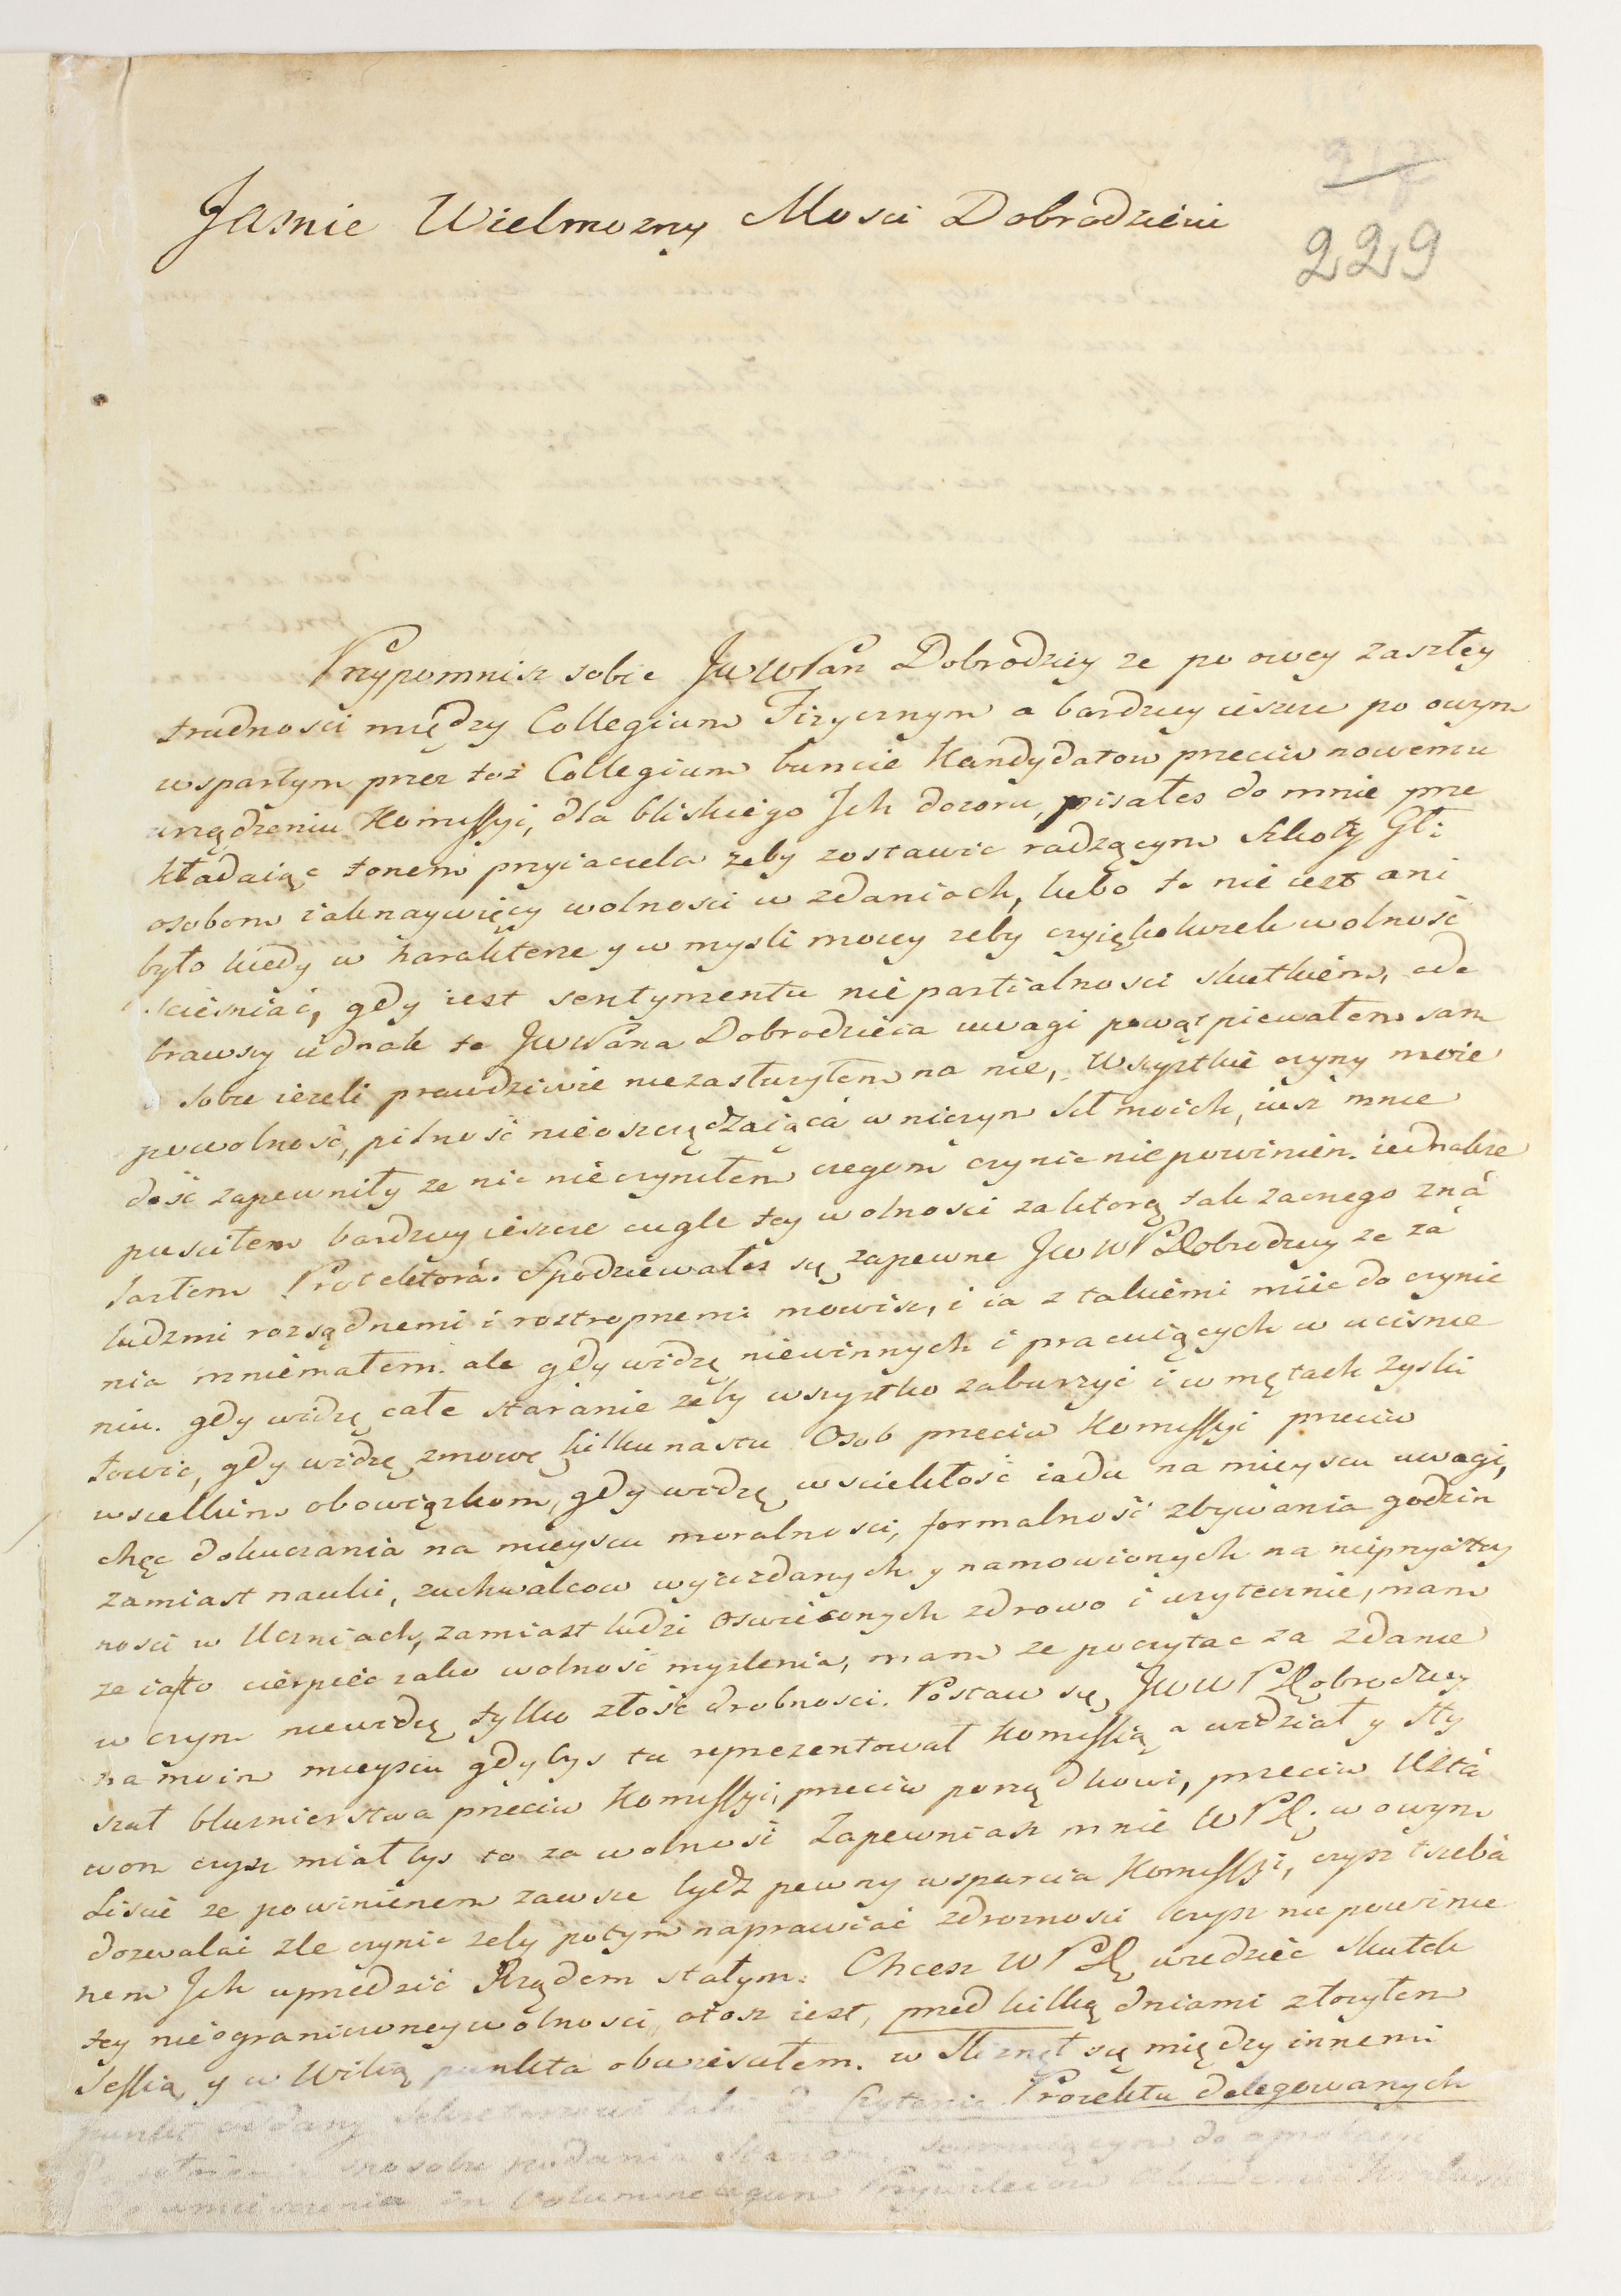 229
Jasnie Wielmozny Mosci Dobrodzieiu
Przypomnisz sobie JwWPan Dobrodziey ze po owey zaszłey
trudnosci między Collegium Fizycznym a bardziey ieszcze po owym
wspartym przez toz Collegium buncie Kandydatow przeciw nowemu
urządzeniu Komissyi, dla bliskiego Ich dozoru, pisałes do mnie prze
kładaiąc tonem przyiaciela zeby zostawic radzącym Szkoły Gł:
osobom iaknaywięcy wolnosci w zdaniach, lubo to nie iest ani
było kiedy w harakterze y w mysli moiey zeby czyiękolwiek wolność
scieśniać, gdy iest sentymentu nie partialnosci skutkiem, ode
brawszy iednak te JwWPana Dobrodzieia uwagi powątpiewałem sam
sobie iezeli prawdziwie niezasłuzyłem na nie, Wszystkie czyny moie
powolność, pilność nieoszczędzaiąca w niczym sił moich, iusz mnie
dość zapewniły ze nic nieczyniłem czegom czynic niepowinien. iednakze
pusciłem bardziey ieszcze cugle tey wolnosci za ktorą tak zacnego zna
lazłem Protektora. Spodziewałes się zapewne JwWPDobrodziey ze za
ludzmi rozsądnemi i roztropnemi mowisz, i ia z takiemi miec do czynie
nia mniemałem. ale gdy widzę niewinnych i pracuiących w ucisnie
niu. gdy widzę całe staranie zeby wszystko zaburzyć i w mętach zyski
łowic, gdy widzę zmowę kilkunastu Osob przeciw Komissyi przeciw
wszelkim obowiązkom, gdy widzę wsciekłość iadu na mieyscu uwagi,
chęc dokuczania na mieyscu moralnosci, formalność zbywania godzin
zamiast nauki, zuchwalcow wyuzdanych y namowionych na nieprzystoy
nosci w Uczniach, zamiast ludzi oswieconych zdrowo i uzytecznie, mam
ze ia to cierpiec iako wolność myslenia, mam ze poczytac za zdanie
w czym niewidzę tylko złość drobnosci. Postaw się JwWPDobrodziey
na moim mieyscu gdybys tu reprezentował Komissią a widział y sły
szał bluznierstwa przeciw Komissyi, przeciw porządkowi, przeciw Usta
wom czysz miałbys to za wolność Zapewniasz mnie WPD: w owym
Liscie ze powinienem zawsze bydź pewny wsparcia Komissyi, czysz trzeba
dozwalać zle czynic zeby potym naprawiać zdroznosci czysz nie powinie
nem Ich uprzedzić Rządem stałym. Chcesz WPD wiedzieć skutek
tey nieograniczoney wolnosci, otosz iest, przed kilką dniami złozyłem
Sessią y w Wilią punkta obwiesciłem. wsliznęł się między innemi
punkt oddany Sekretarzowi taki do Czytania Proiektu delegowanych
sposobu podania Stanom
umieszczenia in Volumine Legum Przywileiow